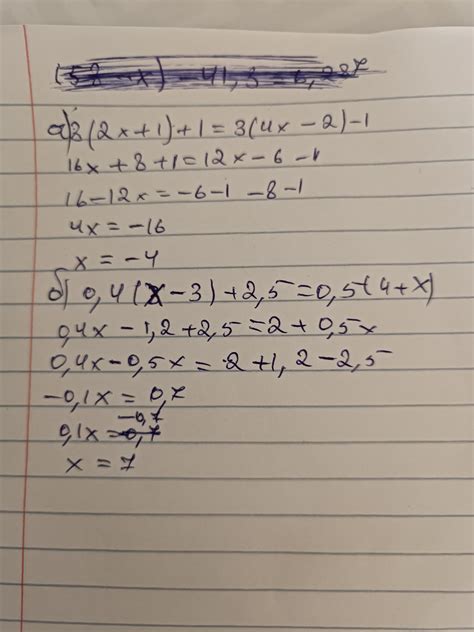 а) 8(2x+1)+1=3(4x-2)-1
16x+8+1=12x-6-1
16-12x=-6-1-8-1
4x=-16
x=-4
б) 0,4(x-3)+2,5=0,5(4+x)
0,4x-1,2+2,5=2+0,5x
0,4x-0,5x=2+1,2-2,5
-0,1x=0,7
0,1x=-0,7
x=7